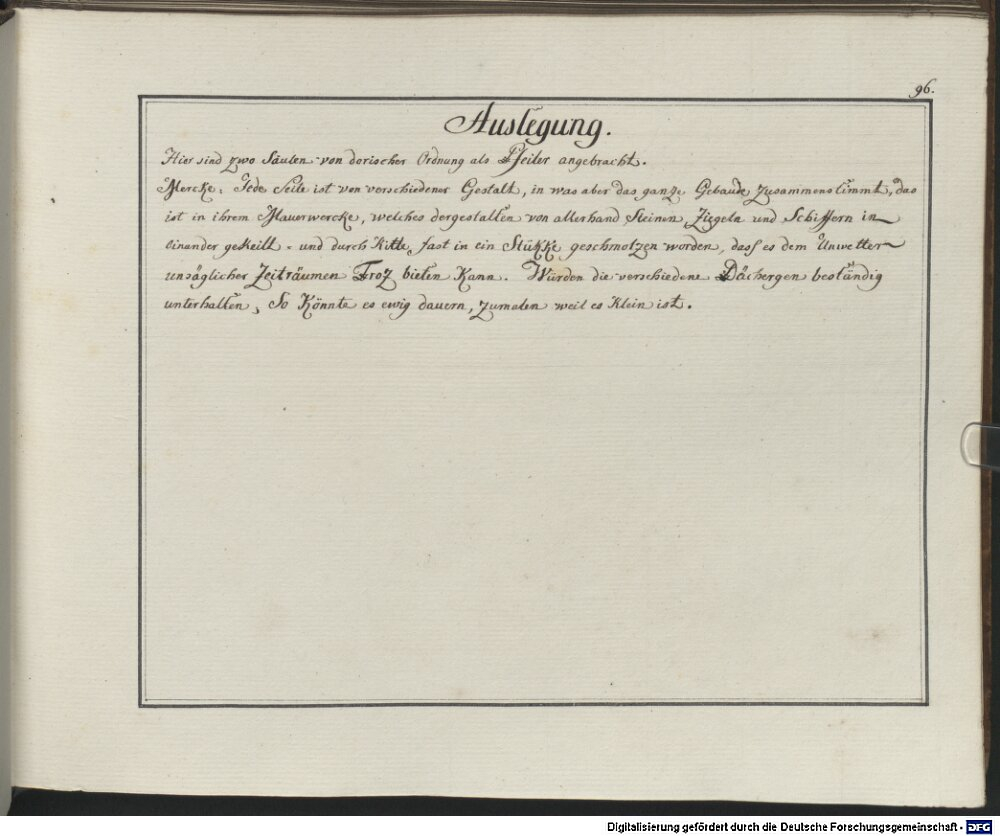 96.
Auslegung.
Hier sind zwo Säulen von dorischer Ordnung als Pfeiler angebracht.
Mercke. Jede Seite ist von verschiedener Gestalt, in was aber das ganze Gebaude zusammenstimmt, das
ist in ihrem Mauerwercke, welches dergestalten von allerhand Steinen, Ziegeln und Schiffern in
einander gekeilt - und durch Kitte, fast in ein Stükke geschmolzen worden, dass es dem Unwetter
unsäglicher Zeiträumen Troz bieten kann. Würden die verschiedene Dächergen beständig
unterhalten, So könnte es ewig dauern, zumalen weil es klein ist.
Digitalisierung gefördert durch die Deutsche Forschungsgemeinschaft - DFG